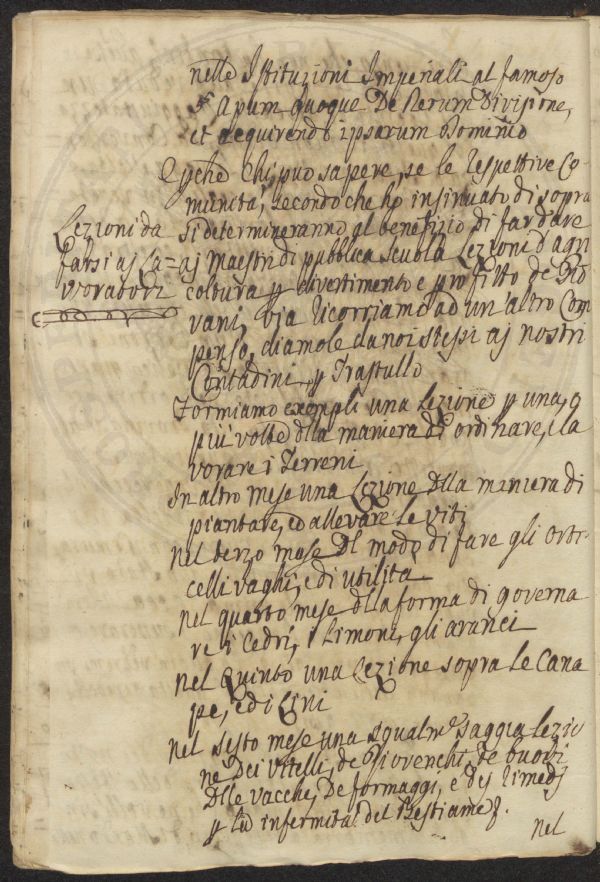 nelle Istituzioni Imperiali al famoso
§ Apum quoque De Rerum Divisione,
et acquirendo ipsarum Dominio
E poche chi può sapere, se le respettive Co
munità, secondo che ho insinuato di sopra
si determineranno al benefizio di far dare
aj Maestri di pubblica scuola Lezioni d'agri
coltura p divertimento e profitto de Gio
vani, via ricorriamo ad un'altro Com
penso, diamole da noi stessi aj nostri
Contadini p Trastullo
Lezioni da
farsi aj La=
voratori
Formiamo exempli una Lezione p una, o
più volte dlla maniera di ordinare, e la
vorare i Terreni
In altro mese una Lezione dlla maniera di
piantare, ed allevare le viti
nel terzo mese Dl modo di fare gli orti
celli vaghi, e di utilità
nel quarto mese dlla forma di governa
re i Cedri, i Limoni, gli aranci
nel Quinto una Lezione sopra le Cana
pe, ed i Lini
nel sesto mese una egualm.e saggia Lezio
ne Dei Vitelli, de Giovenchi, de buovi
Dlle vacche, De formaggi, e dej rimedj
p le infermità del Bestiame.
nel